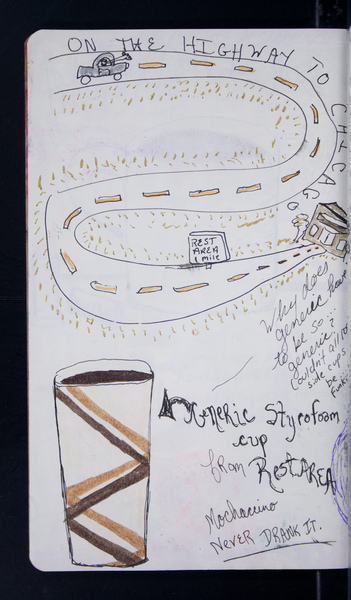 ON THE HIGHWAY TO CHICAGO
REST
AREA
1 mile
Why does
generic have
to be so...
generic?
Couldn't all road
side cups
be
funky?
A Generic Styrofoam
cup
from REST AREA
Mochaccino
NEVER DRANK IT.